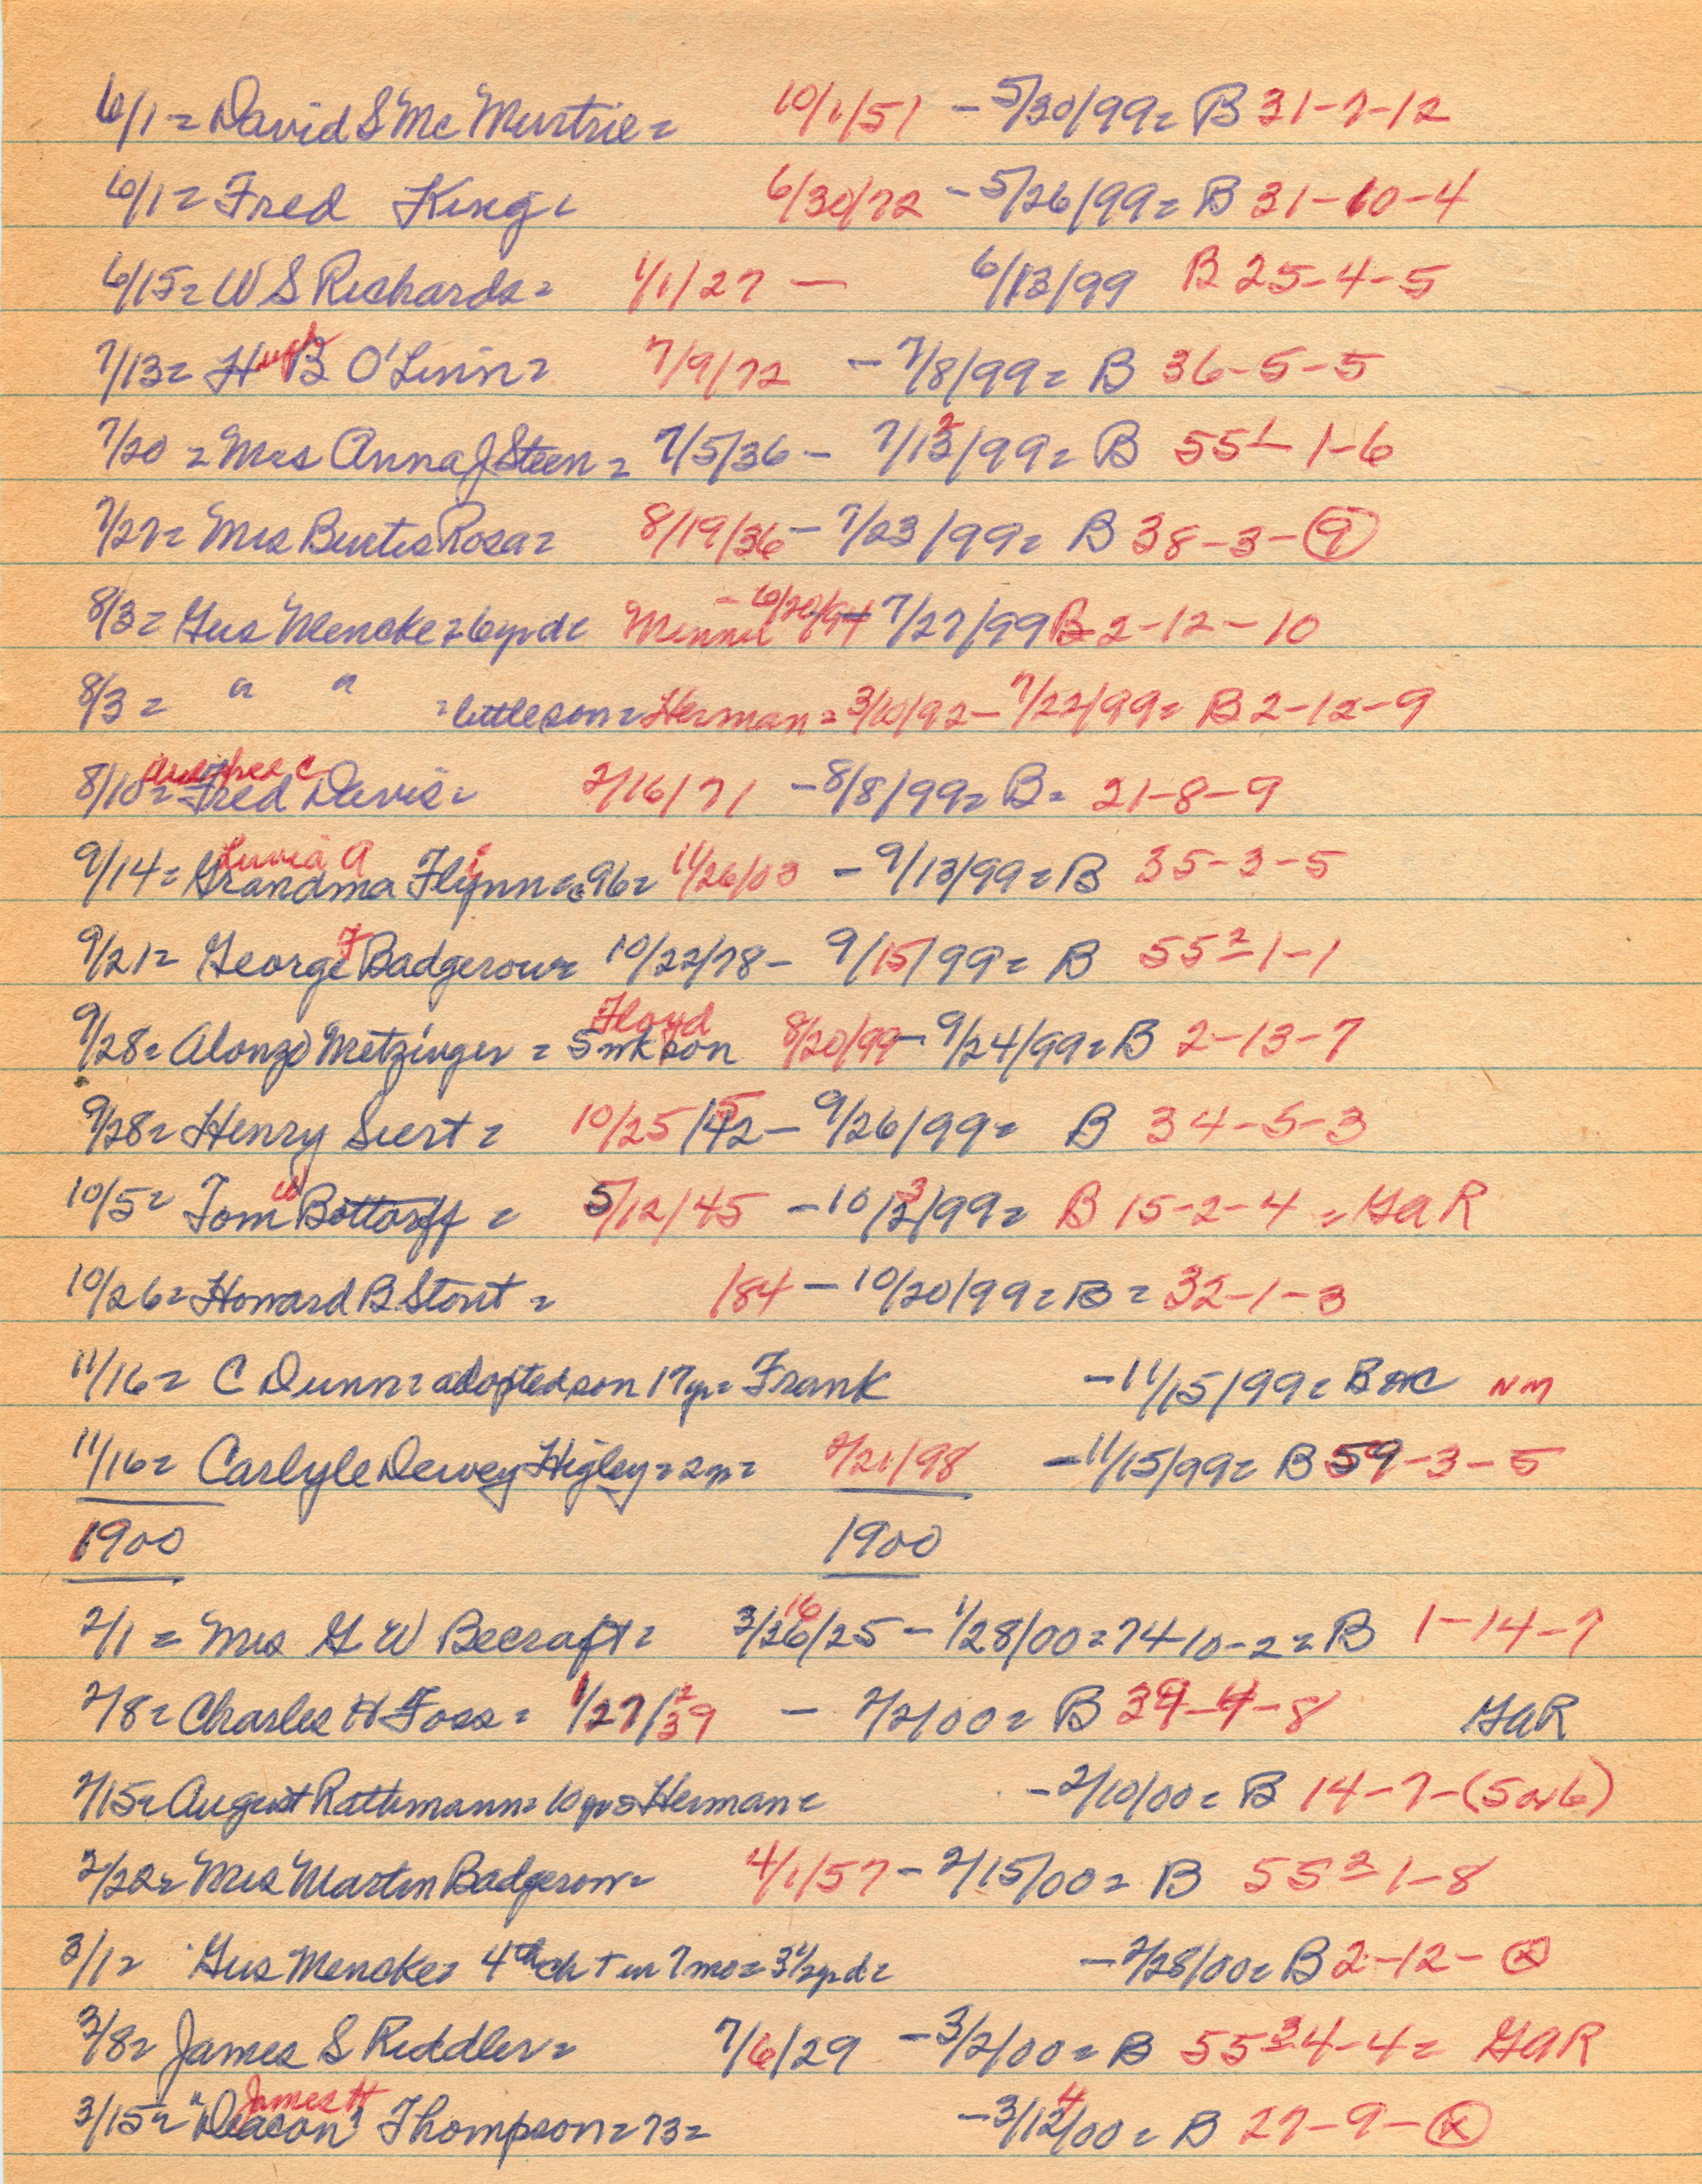 6/1 = David S McMurtrie = 10/1/51 - 5/30/99 = B 31-7-12
6/1 = Fred King = 6/30/72 - 5/26/99 = B 31-10-4
6/15 = W S Richards = 1/1/27 - 6/13/99 B 25-4-5
7/13 = Hugh B O'Linn = 7/9/72 - 7/8/99 = B 36-5-5
7/20 = Mrs Anna J Steen = 7/5/36 - 7/13/99 = B 55 1-1-6
7/27 = Mrs Burtis Rosa = 8/19/36 - 7/23/99 = B 38-3-9
8/3 = Gus Mencke = 6 yr d = Minnie - 6/20/94 7/27/99 B 2-12-10
8/3 = " " = little son = Herman = 3/10/92 - 7/22/99 = B 2-12-9
8/10 = Fred C Davis = 2/16/71 - 8/8/99 = B = 21-8-9
9/14 = Grandma A Flynn = 96 = 11/26/03 - 9/13/99 = B 35-3-5
9/21 = George F Badgerow = 10/22/78 - 9/15/99 = B 55 2-1-1
9/28 = Alonzo Metzinger = 5 wk son Floyd 8/20/99 - 9/24/99 = B 2-13-7
9/28 = Henry Siert = 10/25/42 5 - 9/26/99 = B 34-5-3
10/5 = Tom W Bottorff = 5/12/45 - 10/3/99 = B 15-2-4 = GAR
10/26 = Howard B Stout = 184 - 10/20/99 = B = 32-1-3
11/16 = C Dunn = adopted son 17 yr = Frank - 11/15/99 = B NM
11/16 = Carlyle Dewey Higley = 2 = 2/21/98 - 11/15/99 = B 59-3-5
1900 1900
2/1 = Mrs G W Becraft = 3/26/25 16 - 1/28/00 = 74-10-2 = B 1-14-7
2/8 = Charles H Foss = 1/27/39 2 - 2/2/00 = B 34-4-8 GAR
2/15 = August Rathmann = 10 yr s Herman = - 2/10/00 = B 14-7-(5 or 6)
2/22 = Mrs Martin Badgerow = 4/1/57 - 2/15/00 = B 55 2-1-8
3/1 = Gus Mencke = 4th ch + in 7 mo = 3 1/2 yr d = - 2/28/00 = B 2-12-x
3/8 = James S Riddler = 7/6/29 - 3/2/00 = B 55 3-4-4 = GAR
3/15 = "Deacon" James H Thompson = 73 = - 3/12/00 4 = B 27-9-x